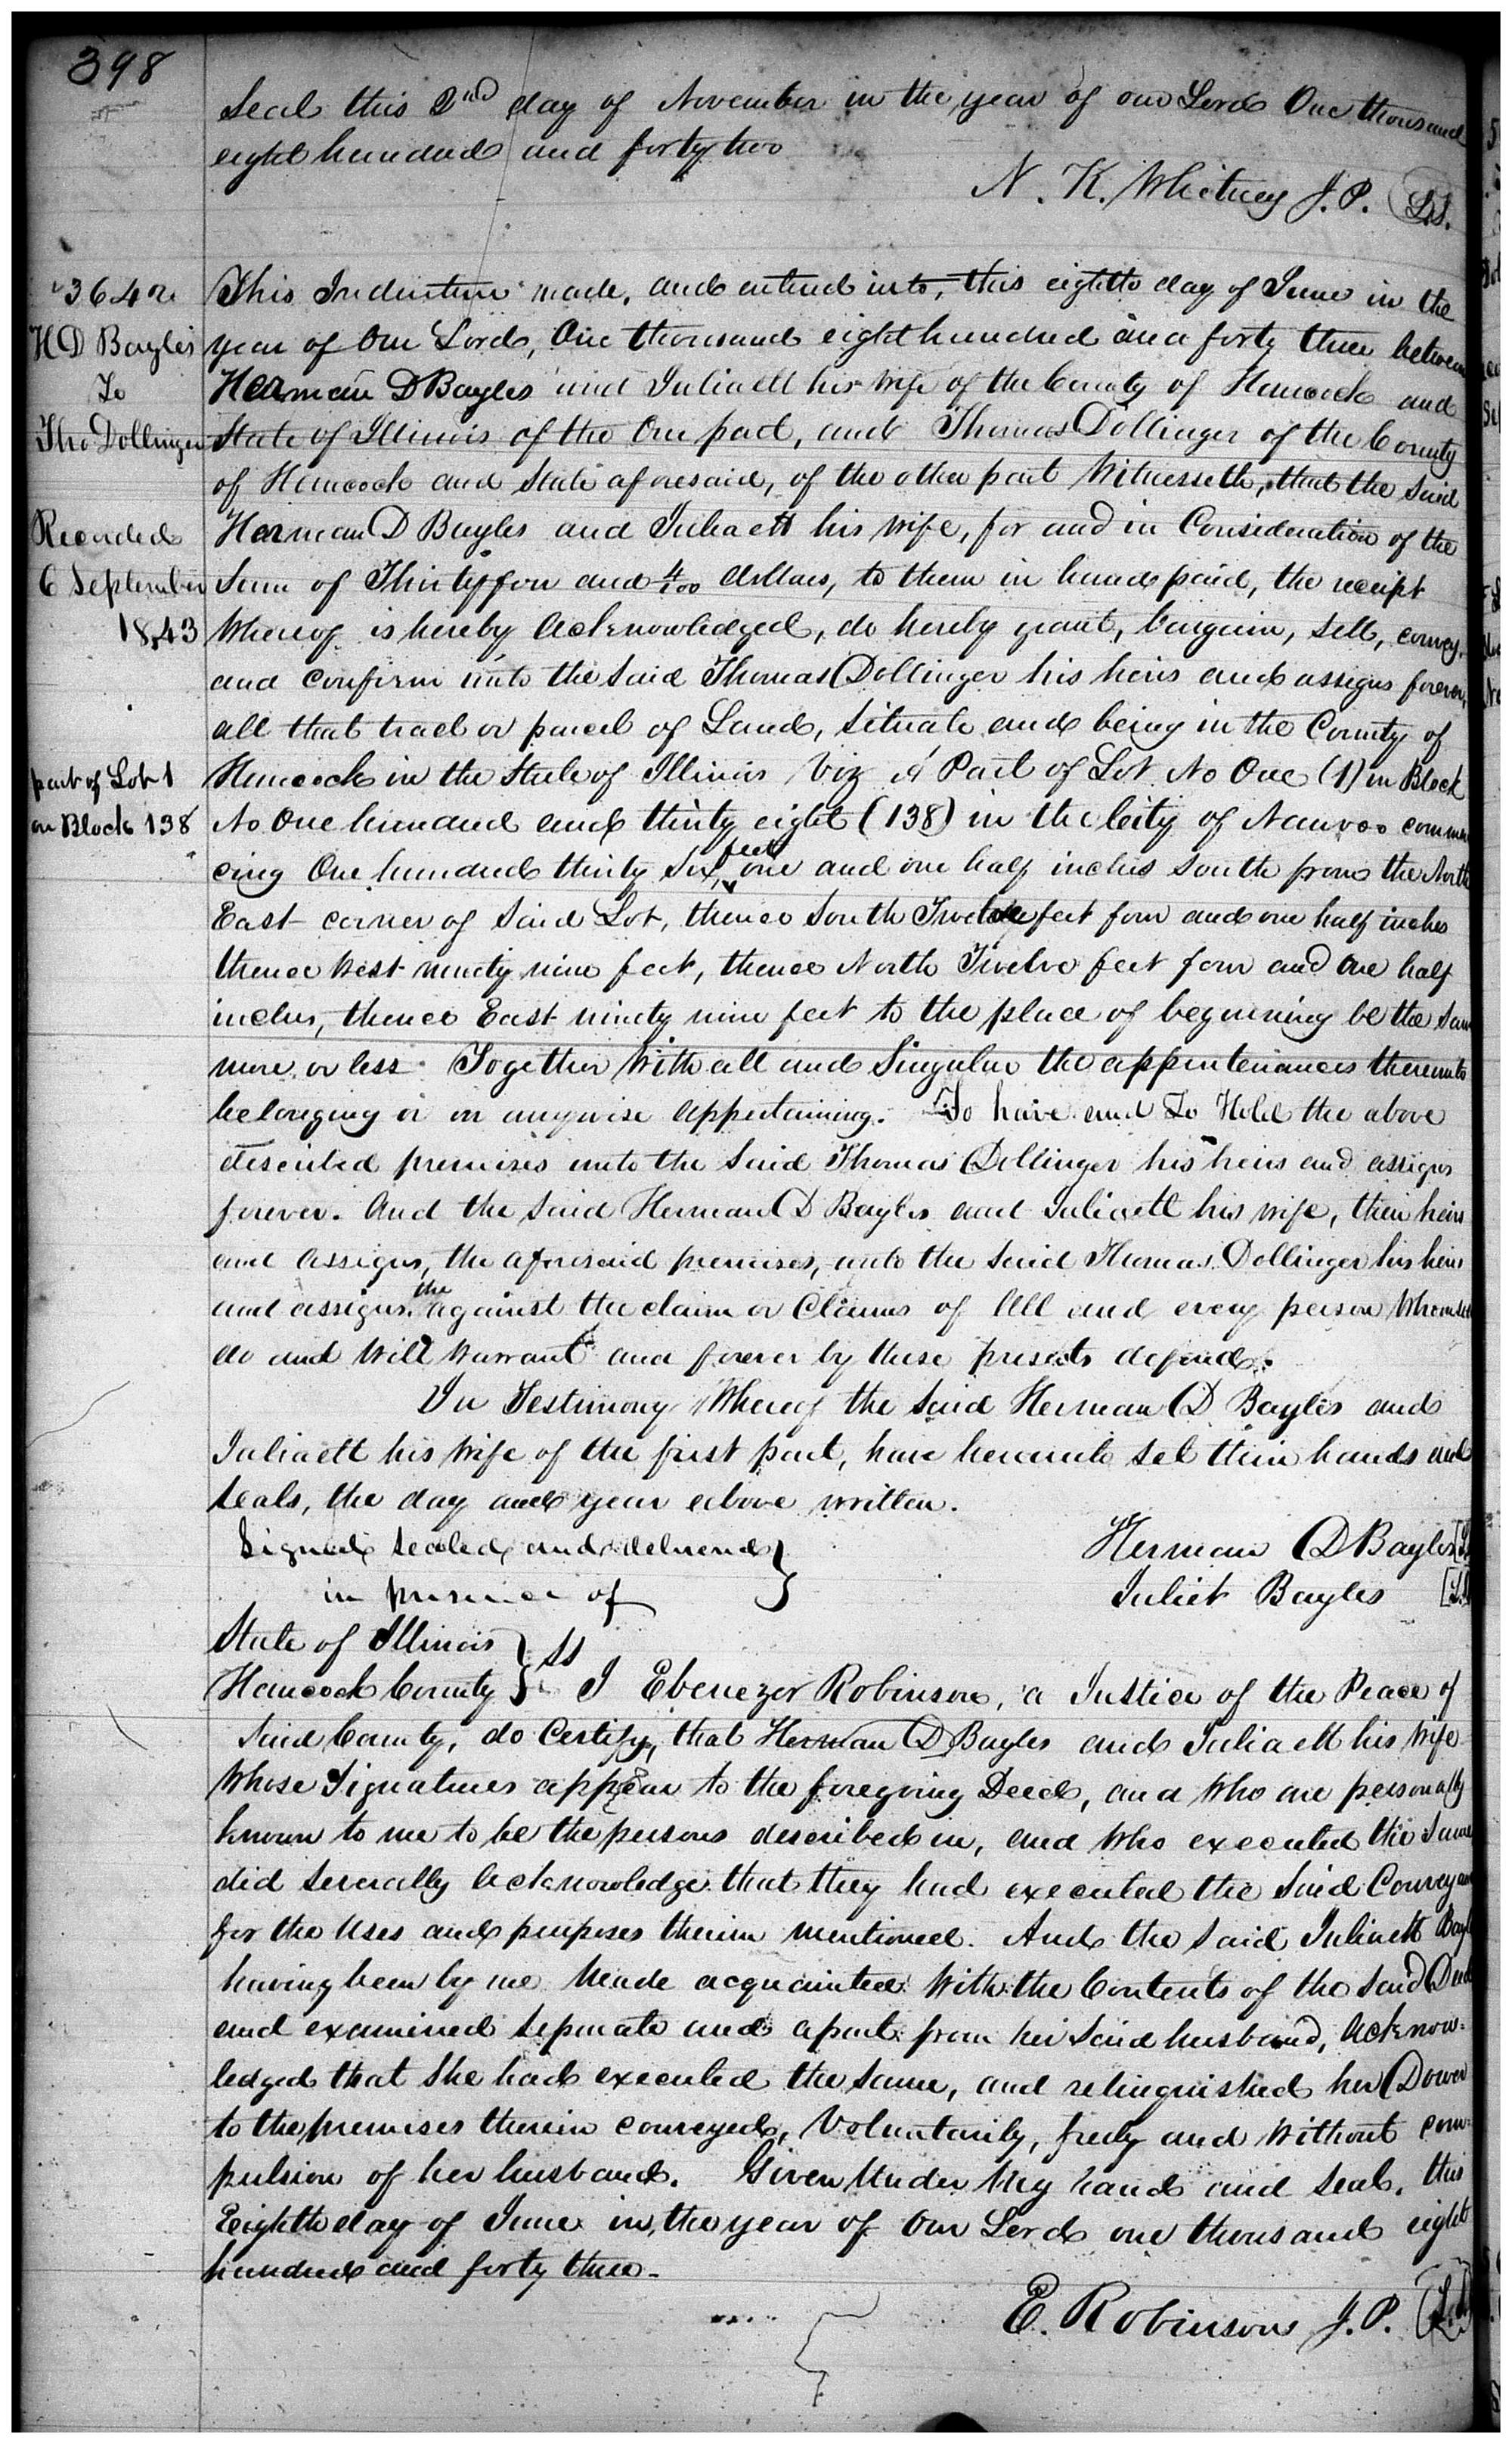 398
Seal this 2nd day of November in the year of our Lord One thousand
eight hundred and forty two
N. K. Whitney J. P. L.S.
3642
H D Bayles
To
Tho Dollinger
Recorded
6 September
1843
part of Lot 1
on Block 138
This Indenture made, and entered into, this eighth day of June in the
year of Our Lord, One thousand eight hundred and forty three between
Herman D Bayles and Juliaett his wife of the County of Hancock and
State of Illinois of the One part, and Thomas Dollinger of the County
of Hancock and State aforesaid, of the other part Witnesseth, that the Said
Herman D Bayles and Juliaett his wife, for and in Consideration of the
Sum of Thirty four and 4/100 dollars, to them in hand paid, the receipt
Whereof is hereby Acknowledged, do hereby grant, bargain, Sell, convey,
and confirm unto the Said Thomas Dollinger his heirs and assigns forever,
all that tract or parcel of Land, Situate and being in the County of
Hancock in the State of Illinois Viz A Part of Lot No One (1) in Block
No One hundred and thirty eight (138) in the City of Nauvoo commen
cing One hundred thirty Six feet one and one half inches South from the North
East corner of Said Lot, thence South Twelve feet four and one half inches
thence West ninety nine feet, thence North Twelve feet four and One half
inches, thence East ninety nine feet to the place of beginning be the Same
more or less. Together With all and Singular the appurtenances thereunto
belonging or in anywise Appertaining. To have and To Hold the above
described premises unto the Said Thomas Dollinger his heirs and assigns
forever. And the Said Herman D Bayles and Juliaett his wife, their heirs
and Assigns, the aforesaid premises, unto the Said Thomas Dollinger his heirs
and assigns. the against the claim or Claims of All and every person Whomsoever
do and Will Warrant and forever by these presents defend.
In Testimony Whereof the Said Herman D Bayles and
Juliaett his Wife of the first part, have hereunto set their hands and
Seals, the day and year above written.
Signed, Sealed and delivered
in presence of
Herman D Bayles L.S.
Juliet Bayles L.S.
State of Illinois
Hancock County } ss I Ebenezer Robinson, a Justice of the Peace of
Said County, do Certify, that Herman D Bayles and Juliaett his Wife
Whose Signatures appear to the foregoing Deed, and Who are personally
known to me to be the persons described in, and Who executed the Same
did Severally Acknowledge that they had executed the Said Conveyance
for the Uses and purposes therein mentioned. And the Said Juliaett Bayles
having been by me Made acquainted With the Contents of the Said Deed
and examined Separate and apart from her Said husband, Acknow-
ledged that She had executed the Same, and relinquished her Dower
to the premises therein conveyed, Voluntarily, freely and Without com-
pulsion of her husband. Given Under My hand and Seal, this
Eighth day of June in the year of Our Lord one thousand eight
hundred and forty three.
E. Robinson J. P. L.S.